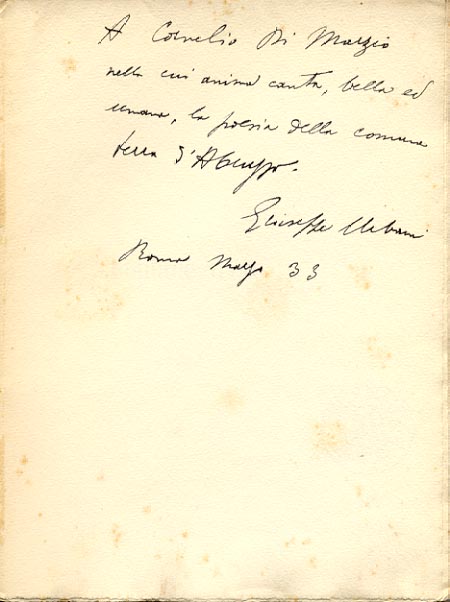 A Cornelio Di Marzio
nella cui anima canta, bella ed
umana, la poesia della comune
terra d'Abruzzo.
Giuseppe Urbani
Roma Marzo 33